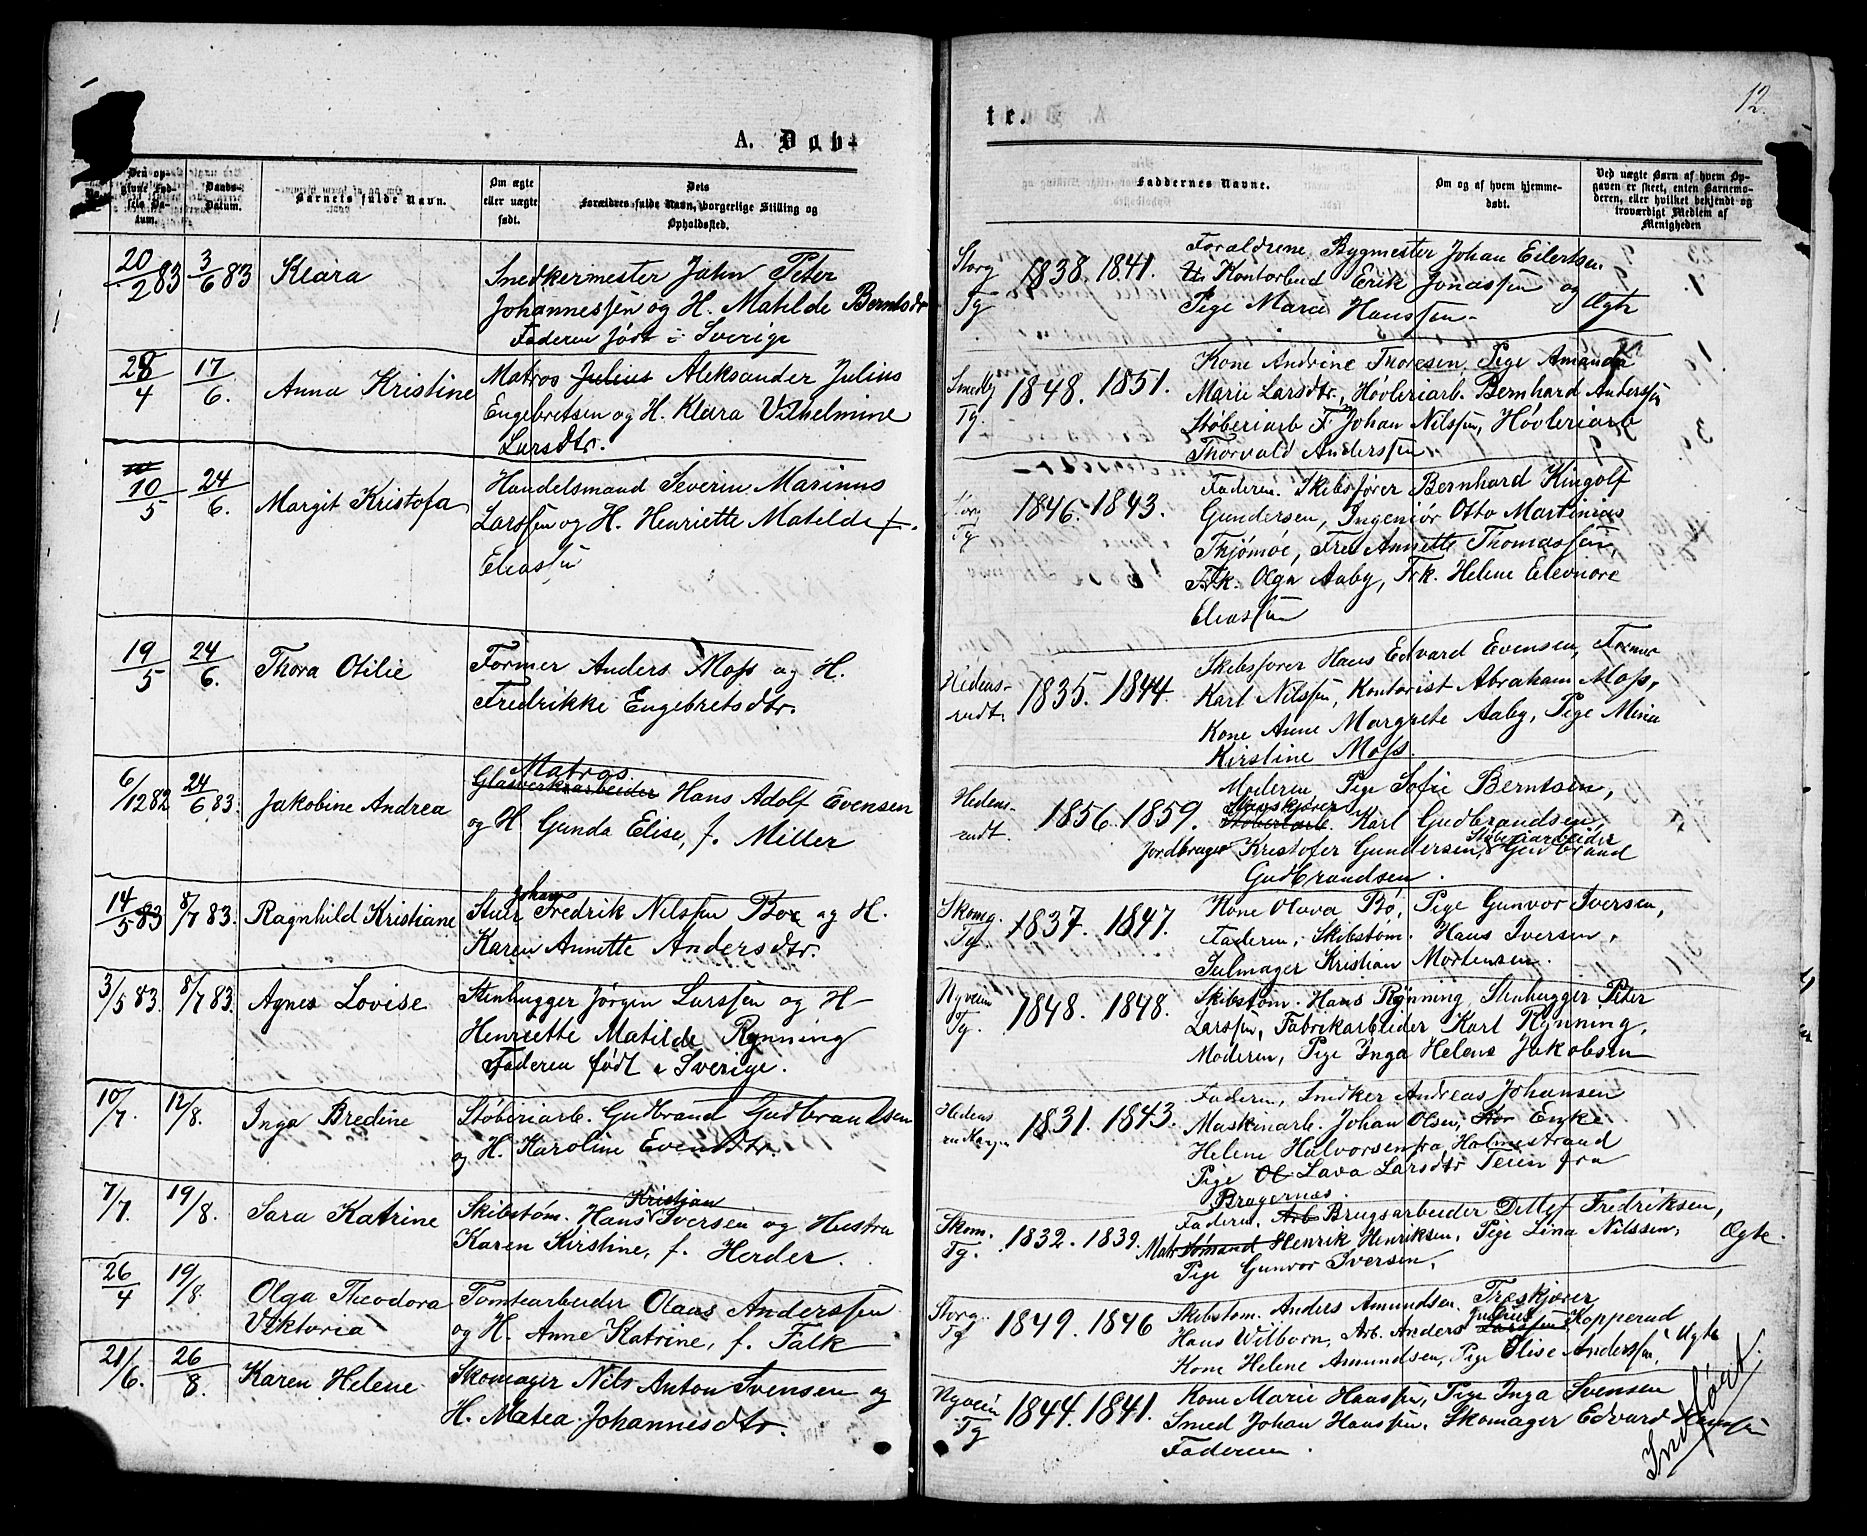 12.
A. Døb-
te.
No.
Den op-
givne Fød-
sels Da-
tum.
Daabs-
Datum.
Barnets fulde Navn.
Om ægte
eller uægte
født.
Dets
Forældres fulde Navn, borgerlige Stilling og
Opholdssted.
Faddernes Navne.
Om og af hvem hjemme-
døbt.
Ved uægte Børn af hvem Op-
gaven er skeet, enten Barnemo-
deren, eller hvilket bekjendt og
troværdigt Medlem af
Menigheden
20/2 83 3/6 83 Klara Snedkermester John Peter
Johannessen og H. Matilde Berntsdtr
Faderen født i Sverige
Storg
Tg 1838. 1841. Forældrene Bygmester Johan Eilertsen
Kontorbud Erik Jonassen og
Pige Maren Hanssen - Ægte
28/4 17/6. Anna Kristine Matros Julius Aleksander Julius
Engebretsen og H. Klara Vilhelmine
Larsdtr.
Tg. 1848. 1851. Kone Andrine Thoresen, Pige Amanda
Marie Larsdtr., Høvleriarb. Bernhard Anderssen
Støberiarb F. Johan Nilssen, Høvleriarb
Thorvald Anderssen
10/5 24/6. Margit Kristofa Handelsmand Severin Marinus
Larssen og H. Henriette Matilde f.
Eliassen
Tg 1846. 1843. Faderen. Skibsfører Bernhard Kingolf
Gundersen, Ingeniør Otto Martinius
Thjømøe, Fru Annette Thomassen
Frk. Olga Aaby, Frk. Helene Eleonore
Eliassen
19/5 24/6. Thora Otilie Former Anders Moss og H.
Fredrikke Engebretsdtr.
Hedens-
rudt. 1835. 1844. Skibsfører Hans Edvard Evensen, Former
Karl Nilssen, Kontorist Abraham Moss,
Kone Anne Margrete Aaby, Pige Mina
Kirstine Moss.
6/12 82 24/6 83. Jakobine Andrea Matros
Glasverksarbeider Hans Adolf Evensen
og H. Gunda Elise, f. Miller
Hedens-
rudt. 1856. 1859. Moderen, Pige Sofie Berntsen,
Støberiarb. Karl Gudbrandsen,
Jordbruger Kristofer Gundersen, Støberiarbeider
Gudbrand
Gudbrandsen.
14/5 83 8/7 83. Ragnhild Kristiane Johan
Fredrik Nilssen Boe og H.
Karen Annette Andersdtr.
Skomg.
Tg. 1837. 1847. Kone Olava Bø, Pige Gunvor Iversen,
Faderen, Skibstøm. Hans Iversen,
Seilmager Kristian Mortensen.
3/5 83. 8/7 83. Agnes Lovise Stenhugger Jørgen Larssen og H
Henriette Matilde Rynning
Faderen født i Sverige.
Nyveien
Tg. 1848. 1848. Skibstøm. Hans Rynning, Stenhugger Peter
Larssen, Fabrikarbeider Karl Rynning,
Moderen, Pige Inga Helene Jakobsen
10/7. 12/8. Inga Bredine Støberiarb. Gudbrand Gudbrandsen
og H. Karoline Evensdtr.
Hedens
1831. 1843. Faderen, Snedker Andreas Johansen
Maskinarb. Johan Olsen, Enke
Helene Halvorsen fra Holmestrand
Pige Ol Lava Larsdtr Teien fra
Bragernæs.
7/7. 19/8. Sara Katrine Skibstøm. Hans Kristjan
Iversen og Hustru
Karen Kirstine, f. Herder.
Skom.
Tg. 1832. 1839. Faderen, Arb Brugsarbeider Ditlef Fredriksen,
Matr Sømand Henrik Henriksen, Pige Lina Nilssen,
Pige Gunvor Iversen. Ægte.
26/4 19/8. Olga Theodora
Viktoria Tomtearbeider Olaus Anderssen
og H. Anne Katrine, f. Falk
Storg.
Tg 1849. 1846 Skibstøm. Anders Amundsen. Træskjærer
Hans Wilborn, Arb. Anders Julius
Larssen Kopperud
Kone Helene Amundsen, Pige Elise Anderssen, Ægte
21/6. 26/8. Karen Helene Skomager Nils Anton Svensen og
H. Matea Johannesdtr.
Nyveien
Tg 1844. 1841. Kone Marie Hanssen, Pige Inga Svensen
Smed Johan Hanssen. Skomager Edvard Hanssen
Faderen.
Indført.